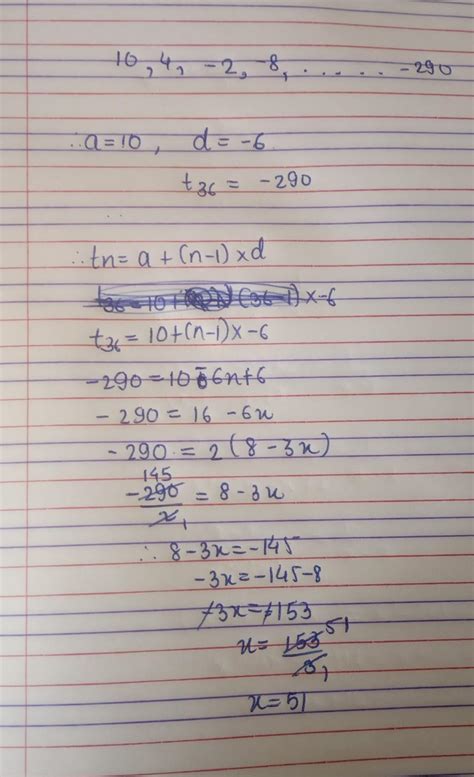 10, 4, -2, -8, ...... -290
∴ a = 10, d = -6
t36 = -290
∴ tn = a + (n-1) × d
t36 = 10 + (36-1) × -6
t36 = 10 + (n-1) × -6
-290 = 10 - 6n + 6
-290 = 16 - 6x
-290 = 2(8 - 3x)
145
-290/2 1 = 8 - 3x
∴ 8 - 3x = -145
-3x = -145 - 8
-3x = -153
x = 153/3 51 1
x = 51